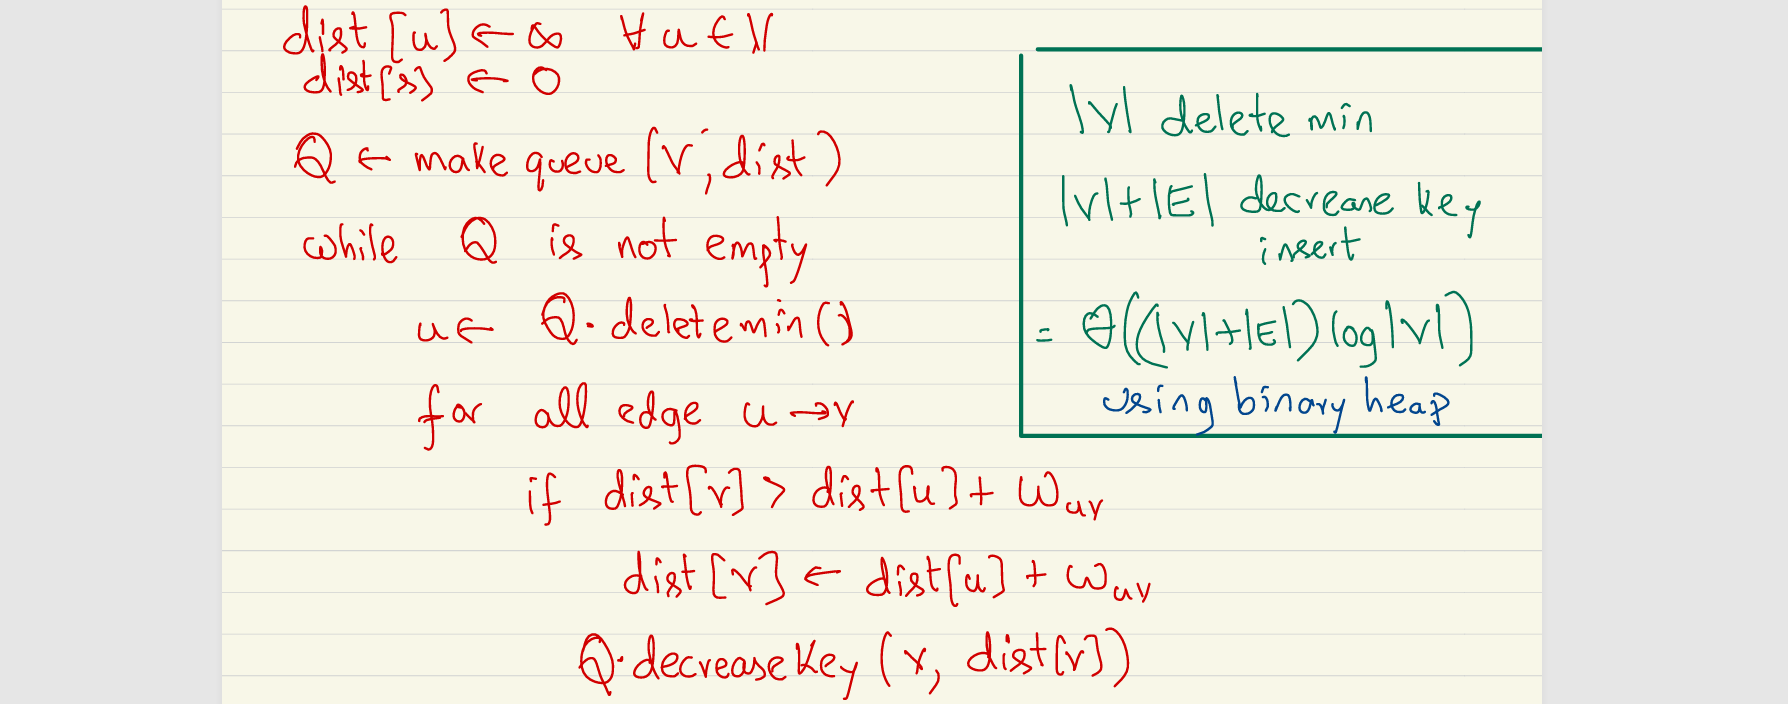 dist [u] ← ∞ ∀ u ∈ V
dist[s] ← 0
Q ← make queue (V, dist)
while Q is not empty
u ← Q.deletemin()
for all edge u → v
if dist[v] > dist[u] + w_uv
dist[v] ← dist[u] + w_uv
Q.decreaseKey (v, dist[v])
|V| delete min
|V|+|E| decrease key
insert
= Θ((|V|+|E|) log|V|)
using binary heap